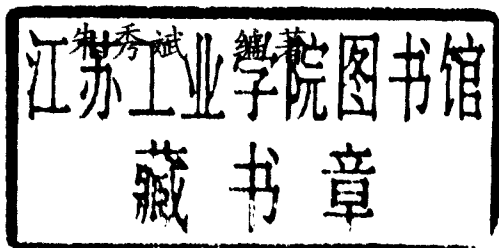 朱秀斌 编著
江苏工业学院图书馆
藏书章